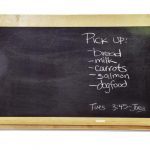 Pick up:
-bread
-milk
-carrots
-salmon
-dogfood
Tues 3:45-